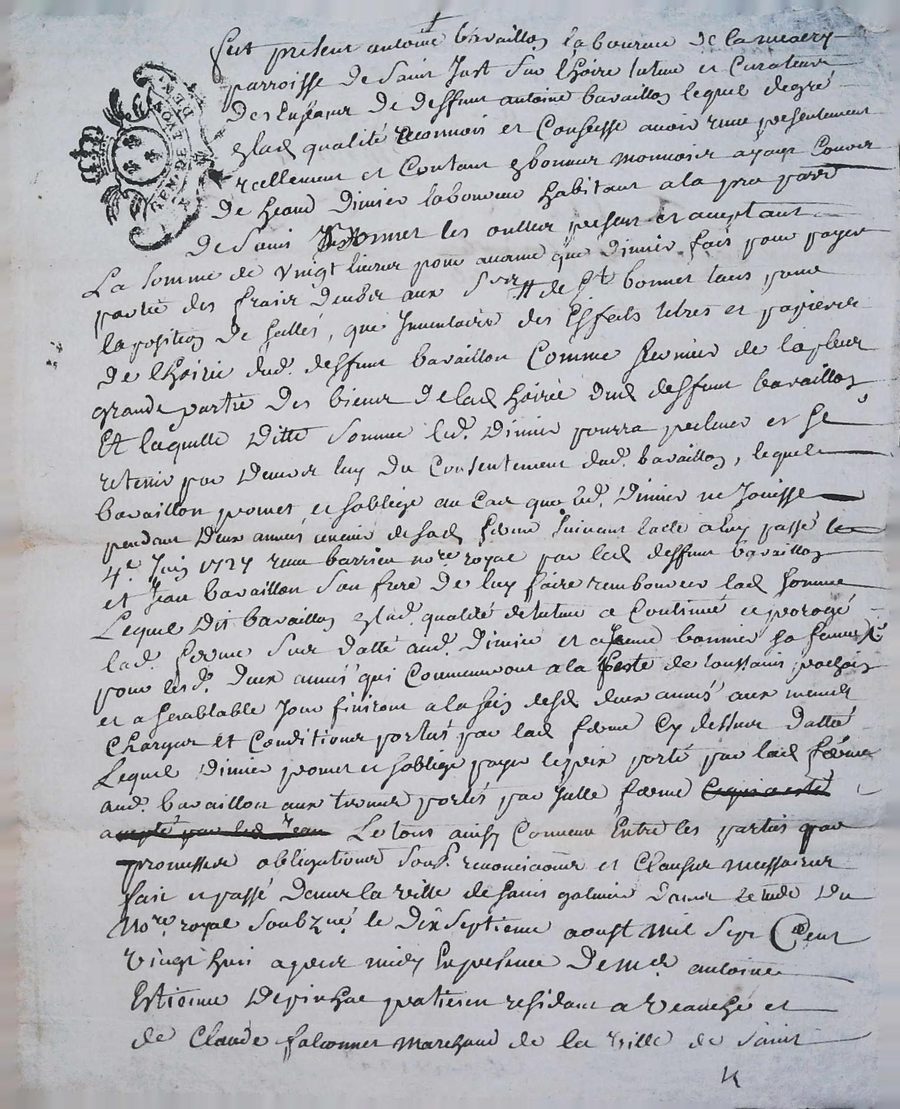 GEN. DE LYON
DEN.
fut present antoine bavaillon laboureur de
parroisse de Saint Just Sur Loire tuteur et Curateur
des Enfans de deffunt antoine bavaillon lequel de gré
esd. qualité reconnoit et Confesse avoir reçu presentement
reellement et Contant en bonne monnoie ayant Cours
de Jean dimier laboureur habitant a la
de Saint bonnet les oulles present et aceptant
La Somme de vingt livres pour avance que dimier fait pour payer
partie des fraix deubs aux Srs de St bonnet tant pour
laposition de Sellés, que Inventaire des Effaits titres et papiers
de lhoirie dud. deffunt bavaillon Comme fermier de la pleus
grande partie des biens de lad hoirie dud deffunt bavaillon
Et laquelle ditte Somme led. dimier pourra et Se
retenir par devers luy du Consentement dud. bavaillon, lequel
bavaillon promet et Soblige au Cas que led. dimier ne Jouisse
pendant deux années de lad ferme Suivant lacte a luy passé le
4e. Juin 1727 barrieu nore. royal par led deffunt bavaillon
et Jean bavaillon Son frere de luy faire rembourcer lad Somme
Lequel dit bavaillon esd. qualité de tuteur a Continué et porogé
lad. ferme Sus datté aud. dimier et a Jeanne bonnier Sa femme
pour lesd. deux années qui Commenceront a la feste de toussaint prochain
et a Semblable Jour finiront a la fin desd. deux années aux memes
Charges et Conditions portés par lad ferme Cy dessus datté
Lequel dimier promet et Soblige payer le prix porté par lad ferme
aud. bavaillon aux termes portés par Jcelle ferme
Le tout ainsy Convenu Entre les parties par
promesses obligations Soub. renonciations et Clauses necessaires
fait et passé dans la ville de Saint galmier dans letude du
Nore. royal Soubzné. le dix Septieme aoust mil Sept Cent
vingt huit apres midy En presence de Me antoine
Estienne praticien residant a veauche et
de Claude falconnet Marchand de la ville de Saint